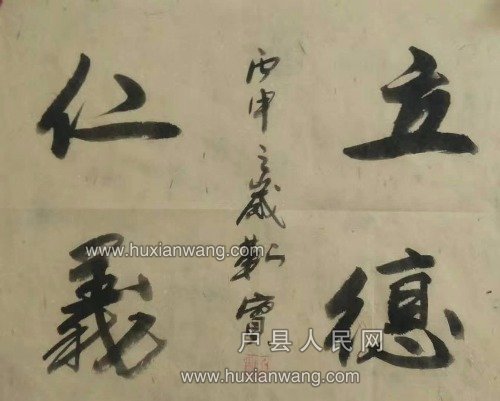 立德
丙申之歲
仁義
www.huxianwang.com
www.huxianwang.com
户县人民网
www.huxianwang.com